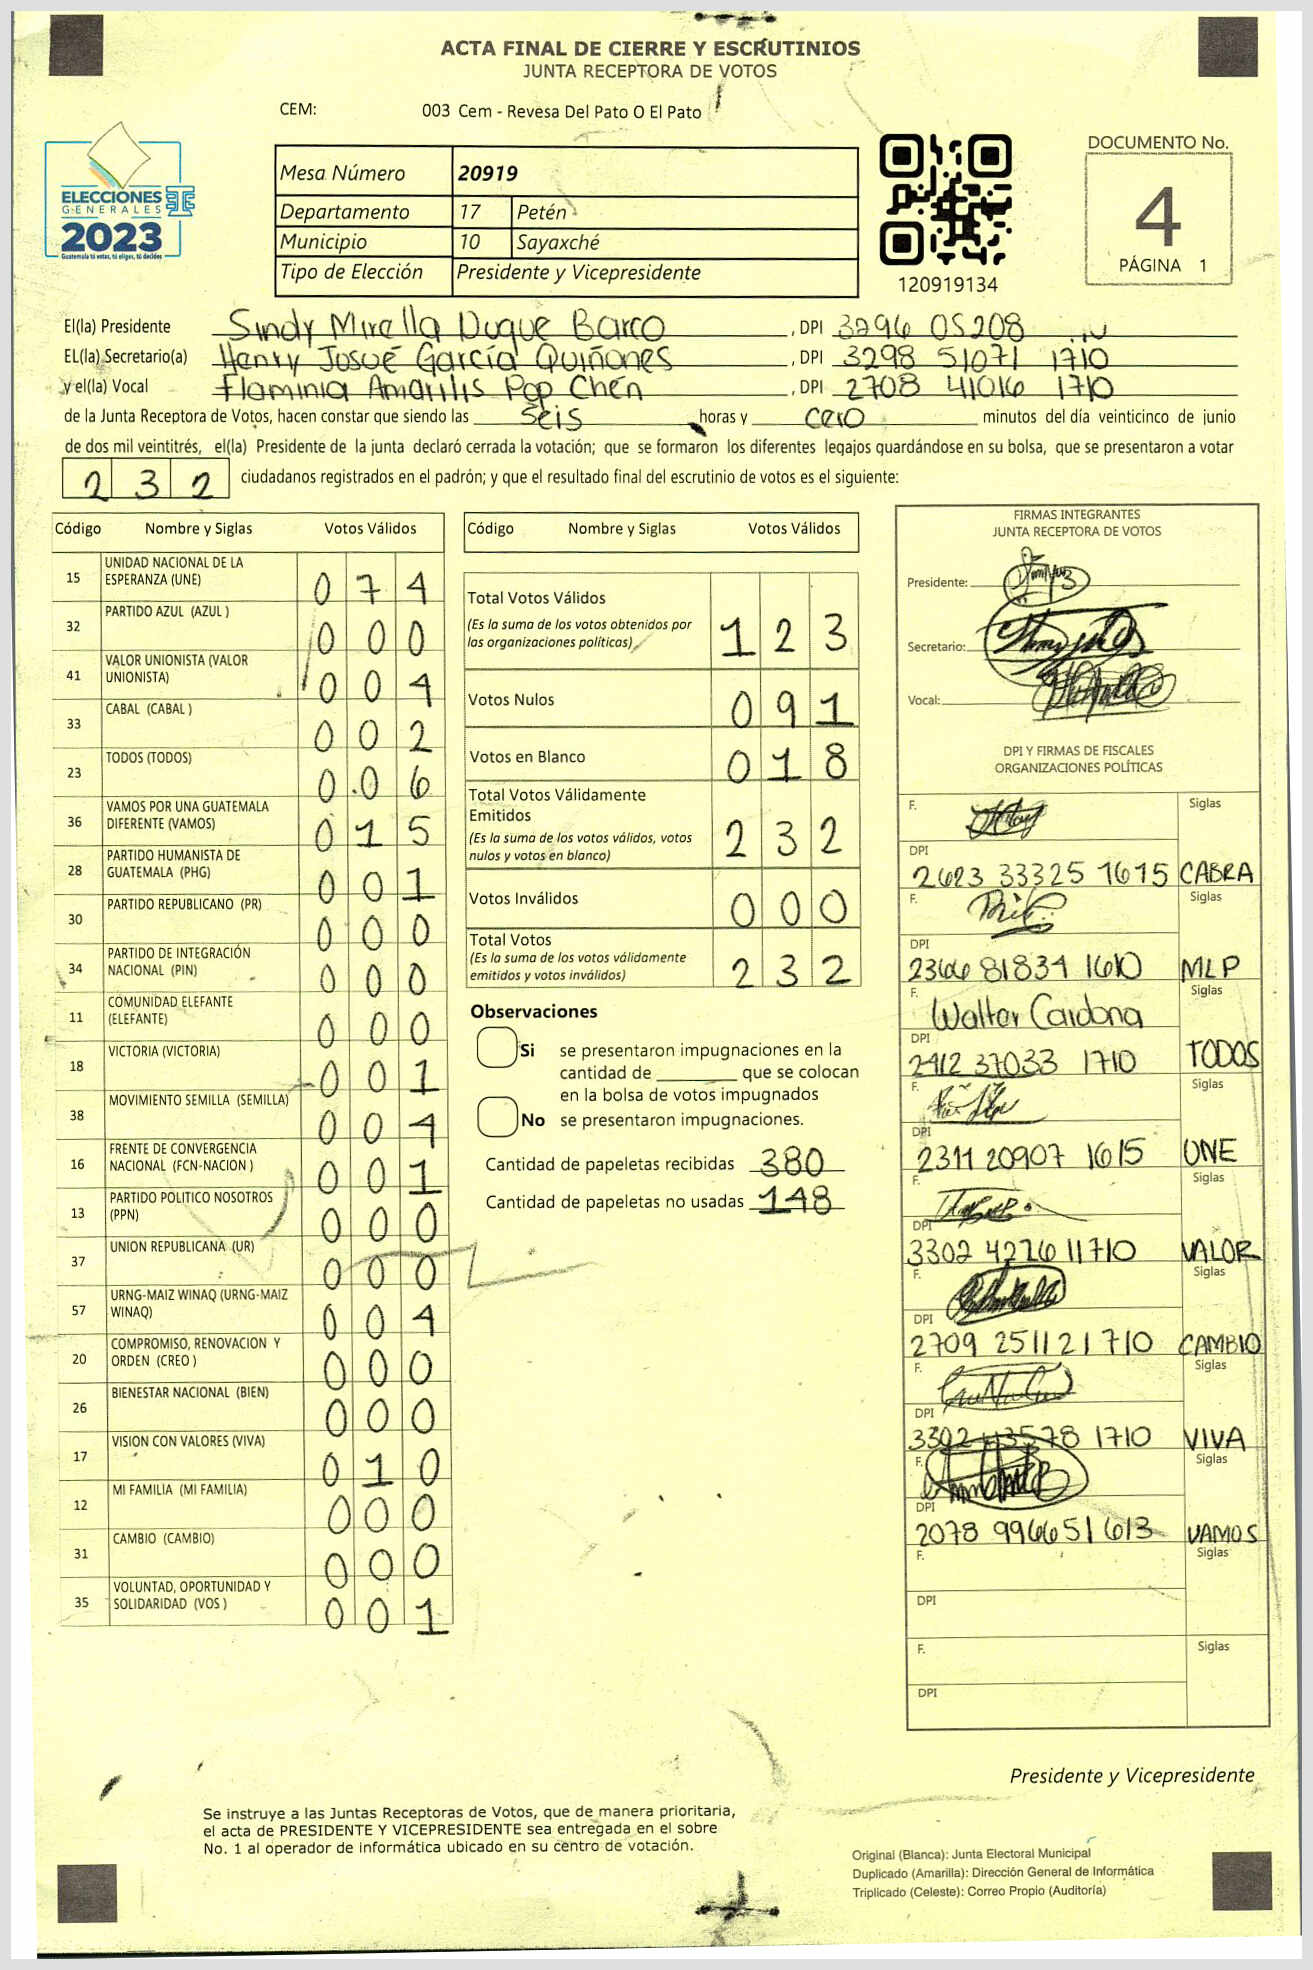 ACTA FINAL DE CIERRE Y ESCRUTINIOS
JUNTA RECEPTORA DE VOTOS
CEM: 003 Cem - Revesa Del Pato O El Pato
ELECCIONES
GENERALES
2023
Guatemala tú votas, tú eliges, tú decides
Mesa Número 20919
Departamento 17 Petén
Municipio 10 Sayaxché
Tipo de Elección Presidente y Vicepresidente
120919134
DOCUMENTO No.
4
PÁGINA 1
El(la) Presidente Sindy Mirella Duque Barco, DPI 3296 05208
EL(la) Secretario(a) Henry Josué García Quiñones, DPI 3298 51071 1710
y el(la) Vocal Flaminia Amarilis Pop Chén, DPI 2708 41016 1710
de la Junta Receptora de Votos, hacen constar que siendo las seis horas y cero minutos del día veinticinco de junio
de dos mil veintitrés, el(la) Presidente de la junta declaró cerrada la votación; que se formaron los diferentes legajos guardándose en su bolsa, que se presentaron a votar
232 ciudadanos registrados en el padrón; y que el resultado final del escrutinio de votos es el siguiente:
Código Nombre y Siglas Votos Válidos
15 UNIDAD NACIONAL DE LA ESPERANZA (UNE) 074
32 PARTIDO AZUL (AZUL ) 000
41 VALOR UNIONISTA (VALOR UNIONISTA) 004
33 CABAL (CABAL ) 002
23 TODOS (TODOS) 006
36 VAMOS POR UNA GUATEMALA DIFERENTE (VAMOS) 015
28 PARTIDO HUMANISTA DE GUATEMALA (PHG) 001
30 PARTIDO REPUBLICANO (PR) 000
34 PARTIDO DE INTEGRACIÓN NACIONAL (PIN) 000
11 COMUNIDAD ELEFANTE (ELEFANTE) 000
18 VICTORIA (VICTORIA) 001
38 MOVIMIENTO SEMILLA (SEMILLA) 004
16 FRENTE DE CONVERGENCIA NACIONAL (FCN-NACION ) 001
13 PARTIDO POLITICO NOSOTROS (PPN) 000
37 UNION REPUBLICANA (UR) 000
57 URNG-MAIZ WINAQ (URNG-MAIZ WINAQ) 004
20 COMPROMISO, RENOVACION Y ORDEN (CREO ) 000
26 BIENESTAR NACIONAL (BIEN) 000
17 VISION CON VALORES (VIVA) 010
12 MI FAMILIA (MI FAMILIA) 000
31 CAMBIO (CAMBIO) 000
35 VOLUNTAD, OPORTUNIDAD Y SOLIDARIDAD (VOS ) 001
Código Nombre y Siglas Votos Válidos
Total Votos Válidos 123
(Es la suma de los votos obtenidos por
las organizaciones políticas)
Votos Nulos 091
Votos en Blanco 018
Total Votos Válidamente
Emitidos 232
(Es la suma de los votos válidos, votos
nulos y votos en blanco)
Votos Inválidos 000
Total Votos 232
(Es la suma de los votos válidamente
emitidos y votos inválidos)
Observaciones
Si se presentaron impugnaciones en la
cantidad de ________ que se colocan
en la bolsa de votos impugnados
No se presentaron impugnaciones.
Cantidad de papeletas recibidas 380
Cantidad de papeletas no usadas 148
FIRMAS INTEGRANTES
JUNTA RECEPTORA DE VOTOS
Presidente:
Secretario:
Vocal:
DPI Y FIRMAS DE FISCALES
ORGANIZACIONES POLÍTICAS
F. Siglas
DPI
2623 33325 1615 CABRA
F. Siglas
DPI
2366 81834 1610 MLP
F. Siglas
Walter Cardona
DPI
2412 37033 1710 TODOS
F. Siglas
DPI
2311 20907 1615 UNE
F. Siglas
DPI
3302 42761 1710 VALOR
F. Siglas
DPI
2709 25112 1710 CAMBIO
F. Siglas
DPI
3302 43578 1710 VIVA
F. Siglas
DPI
2078 99665 1613 VAMOS
F. Siglas
DPI
F. Siglas
DPI
Presidente y Vicepresidente
Se instruye a las Juntas Receptoras de Votos, que de manera prioritaria,
el acta de PRESIDENTE Y VICEPRESIDENTE sea entregada en el sobre
No. 1 al operador de informática ubicado en su centro de votación.
Original (Blanca): Junta Electoral Municipal
Duplicado (Amarilla): Dirección General de Informática
Triplicado (Celeste): Correo Propio (Auditoría)